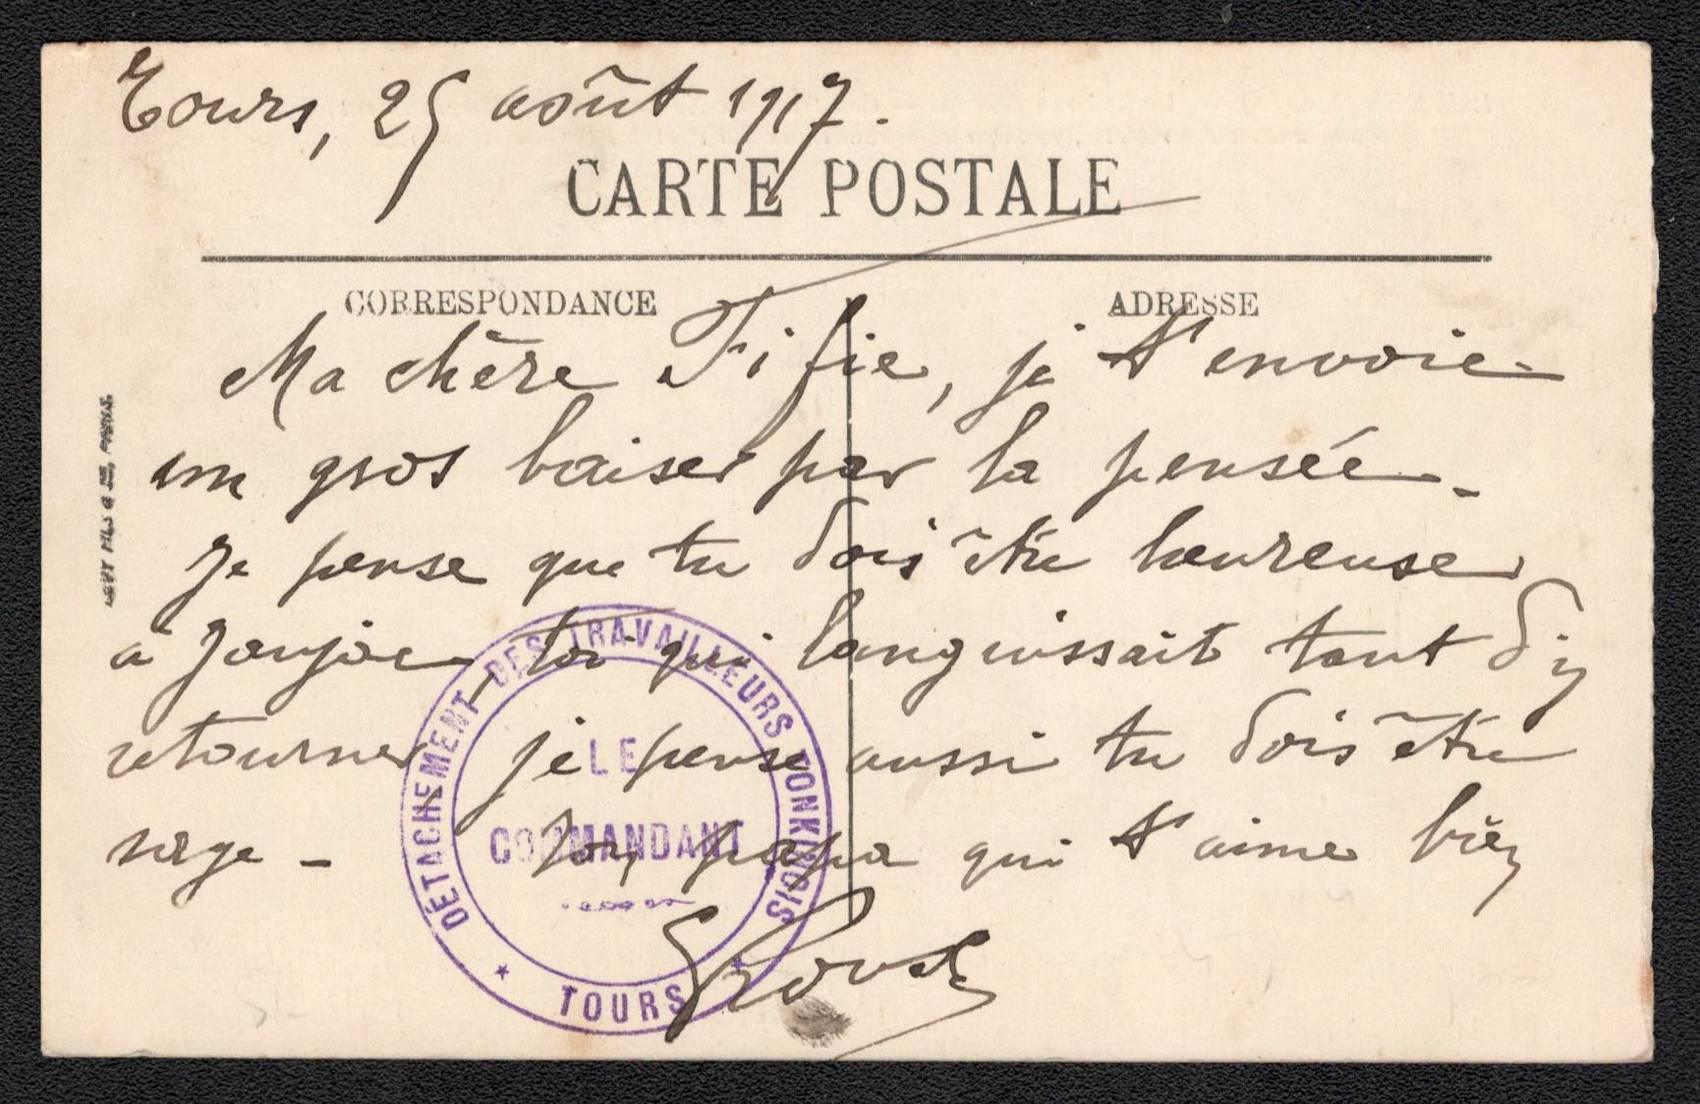 Tours, 25 août 1917.
CARTE POSTALE
CORRESPONDANCE
ADRESSE
Ma chère Fifie, je t'envoie
un gros baiser par la pensée_
Je pense que tu dois être heureuse
à Jaujac toi qui languissait tant d'y
retourner je pense aussi tu dois être
sage _ Ton papa qui t'aime bien
LEVY FILS & CIE, PARIS.
DÉTACHEMENT DES TRAVAILLEURS TONKINOIS
LE
COMMANDANT
★ TOURS ★